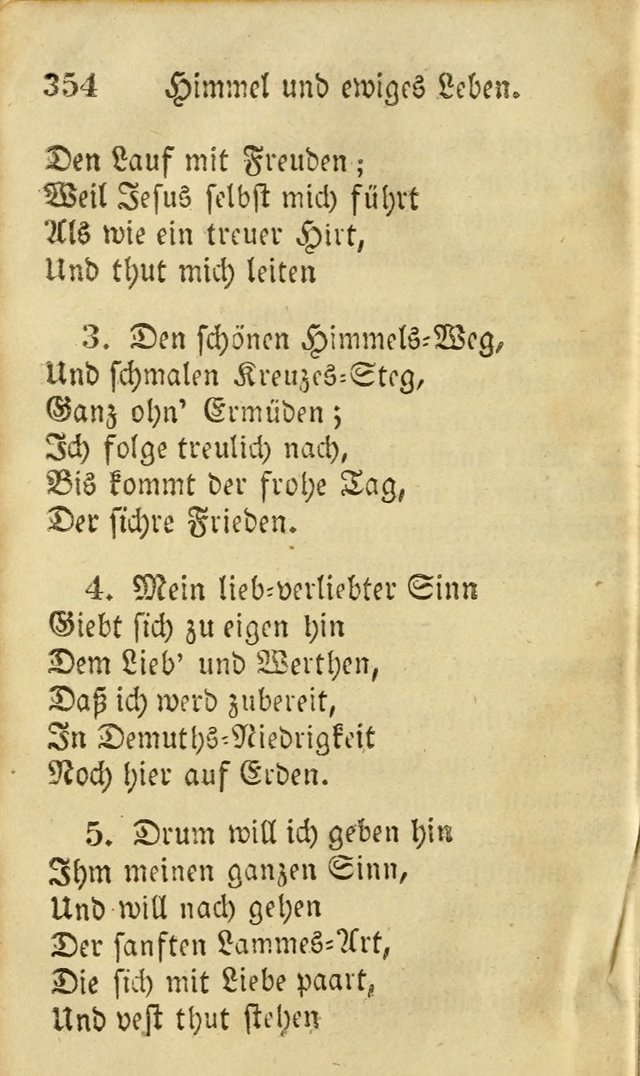 354 Himmel und ewiges Leben.
Den Lauf mit Freuden;
Weil Jesus selbst mich führt
Als wie ein treuer Hirt,
Und thut mich leiten
3. Den schönen Himmels-Weg,
Und schmalen Kreuzes-Steg,
Ganz ohn' Ermüden;
Ich folge treulich nach,
Bis kommt der frohe Tag,
Der sichre Frieden.
4. Mein lieb-verliebter Sinn
Giebt sich zu eigen hin
Dem Lieb' und Werthen,
Daß ich werd zubereit,
In Demuths-Niedrigkeit
Noch hier auf Erden.
5. Drum will ich geben hin
Ihm meinen ganzen Sinn,
Und will nach gehen
Der sanften Lammes-Art,
Die sich mit Liebe paart,
Und vest thut stehen